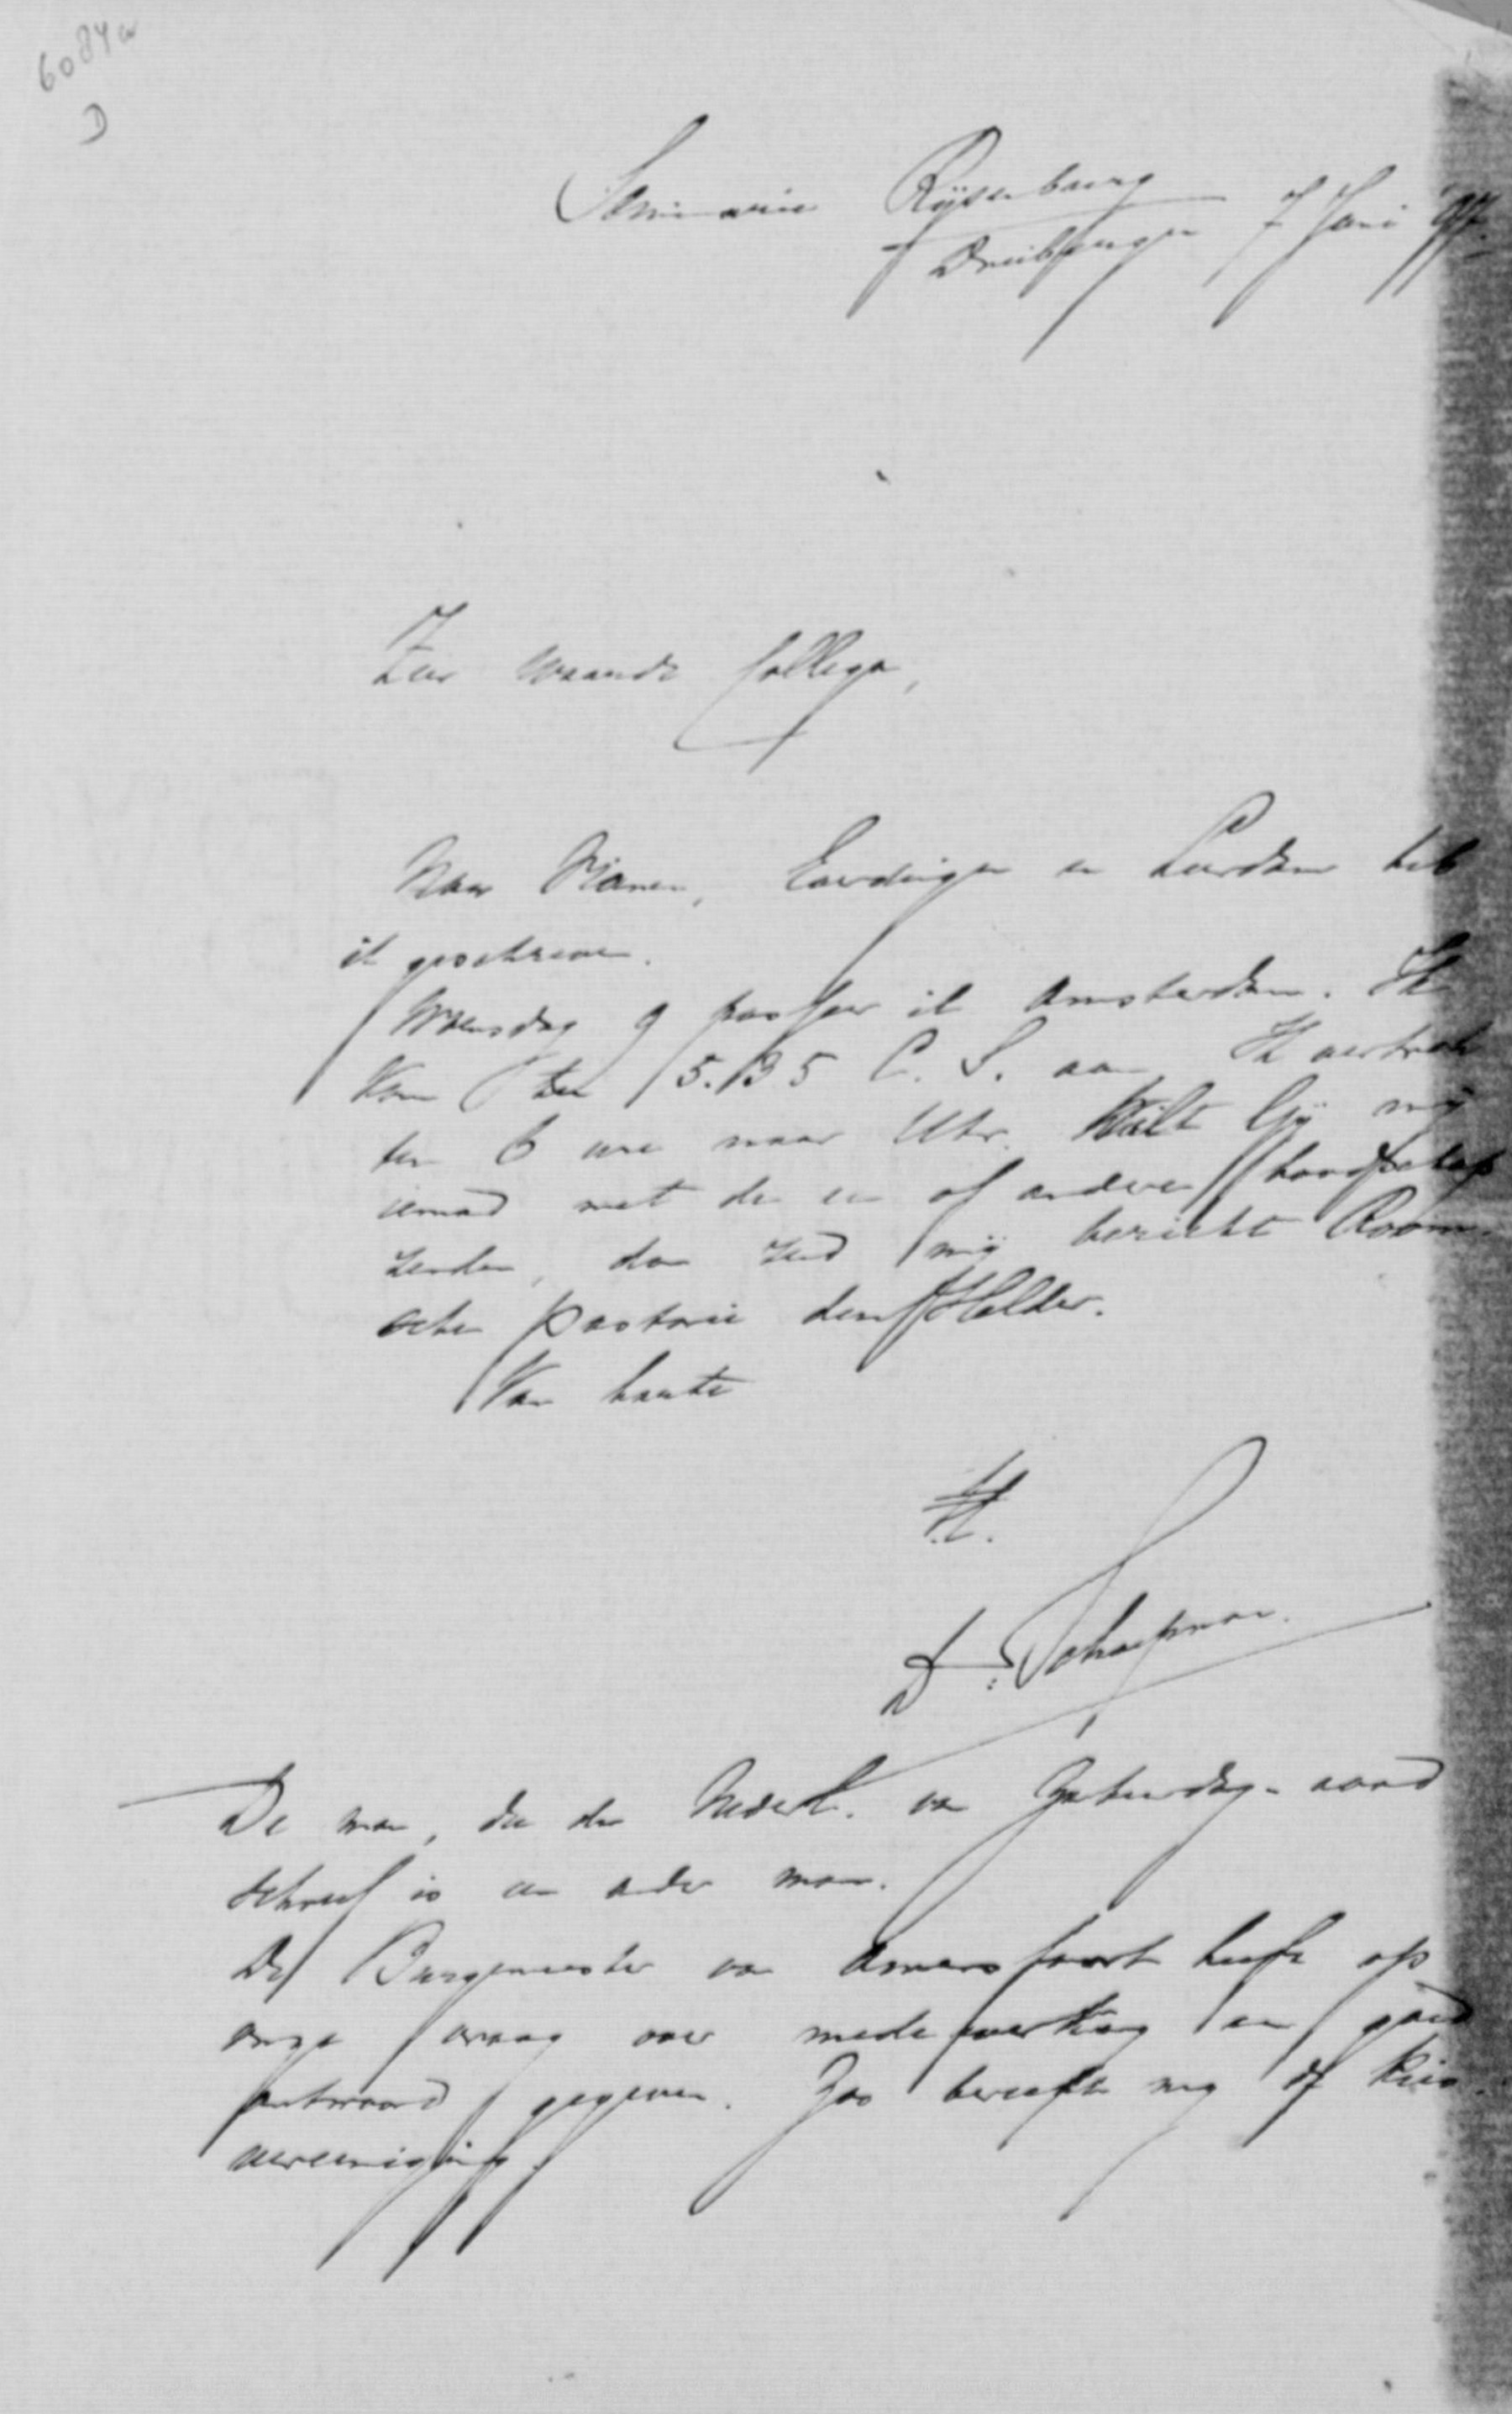 6084a
D
Seminarie Rijsenburg
Driebergen 7 Juni 97.
Zeer Waarde Collega,
Naar Vianen, Everdingen en Leerdam heb
ik geschreven.
Woensdag 9 passeer ik Amsterdam. Ik
kom ten 5.35 C. S. aan Ik vertrek
ten 6 ure naar Utr. Wilt Gij mij
iemand met de een of andere boodschap
zenden, dan zend mij bericht Room-
sche Pastorie den Helder.
Van harte
tt.
Dr. Schaepman.
De man, die den Nederl. van Zaturdag-avond
schreef is een ander man.
De Burgemeester van Amersfoort heeft op
onze vraag over medewerking een goed
antwoord gegeven. Zoo bericht mij de Kies-
vereeniging.